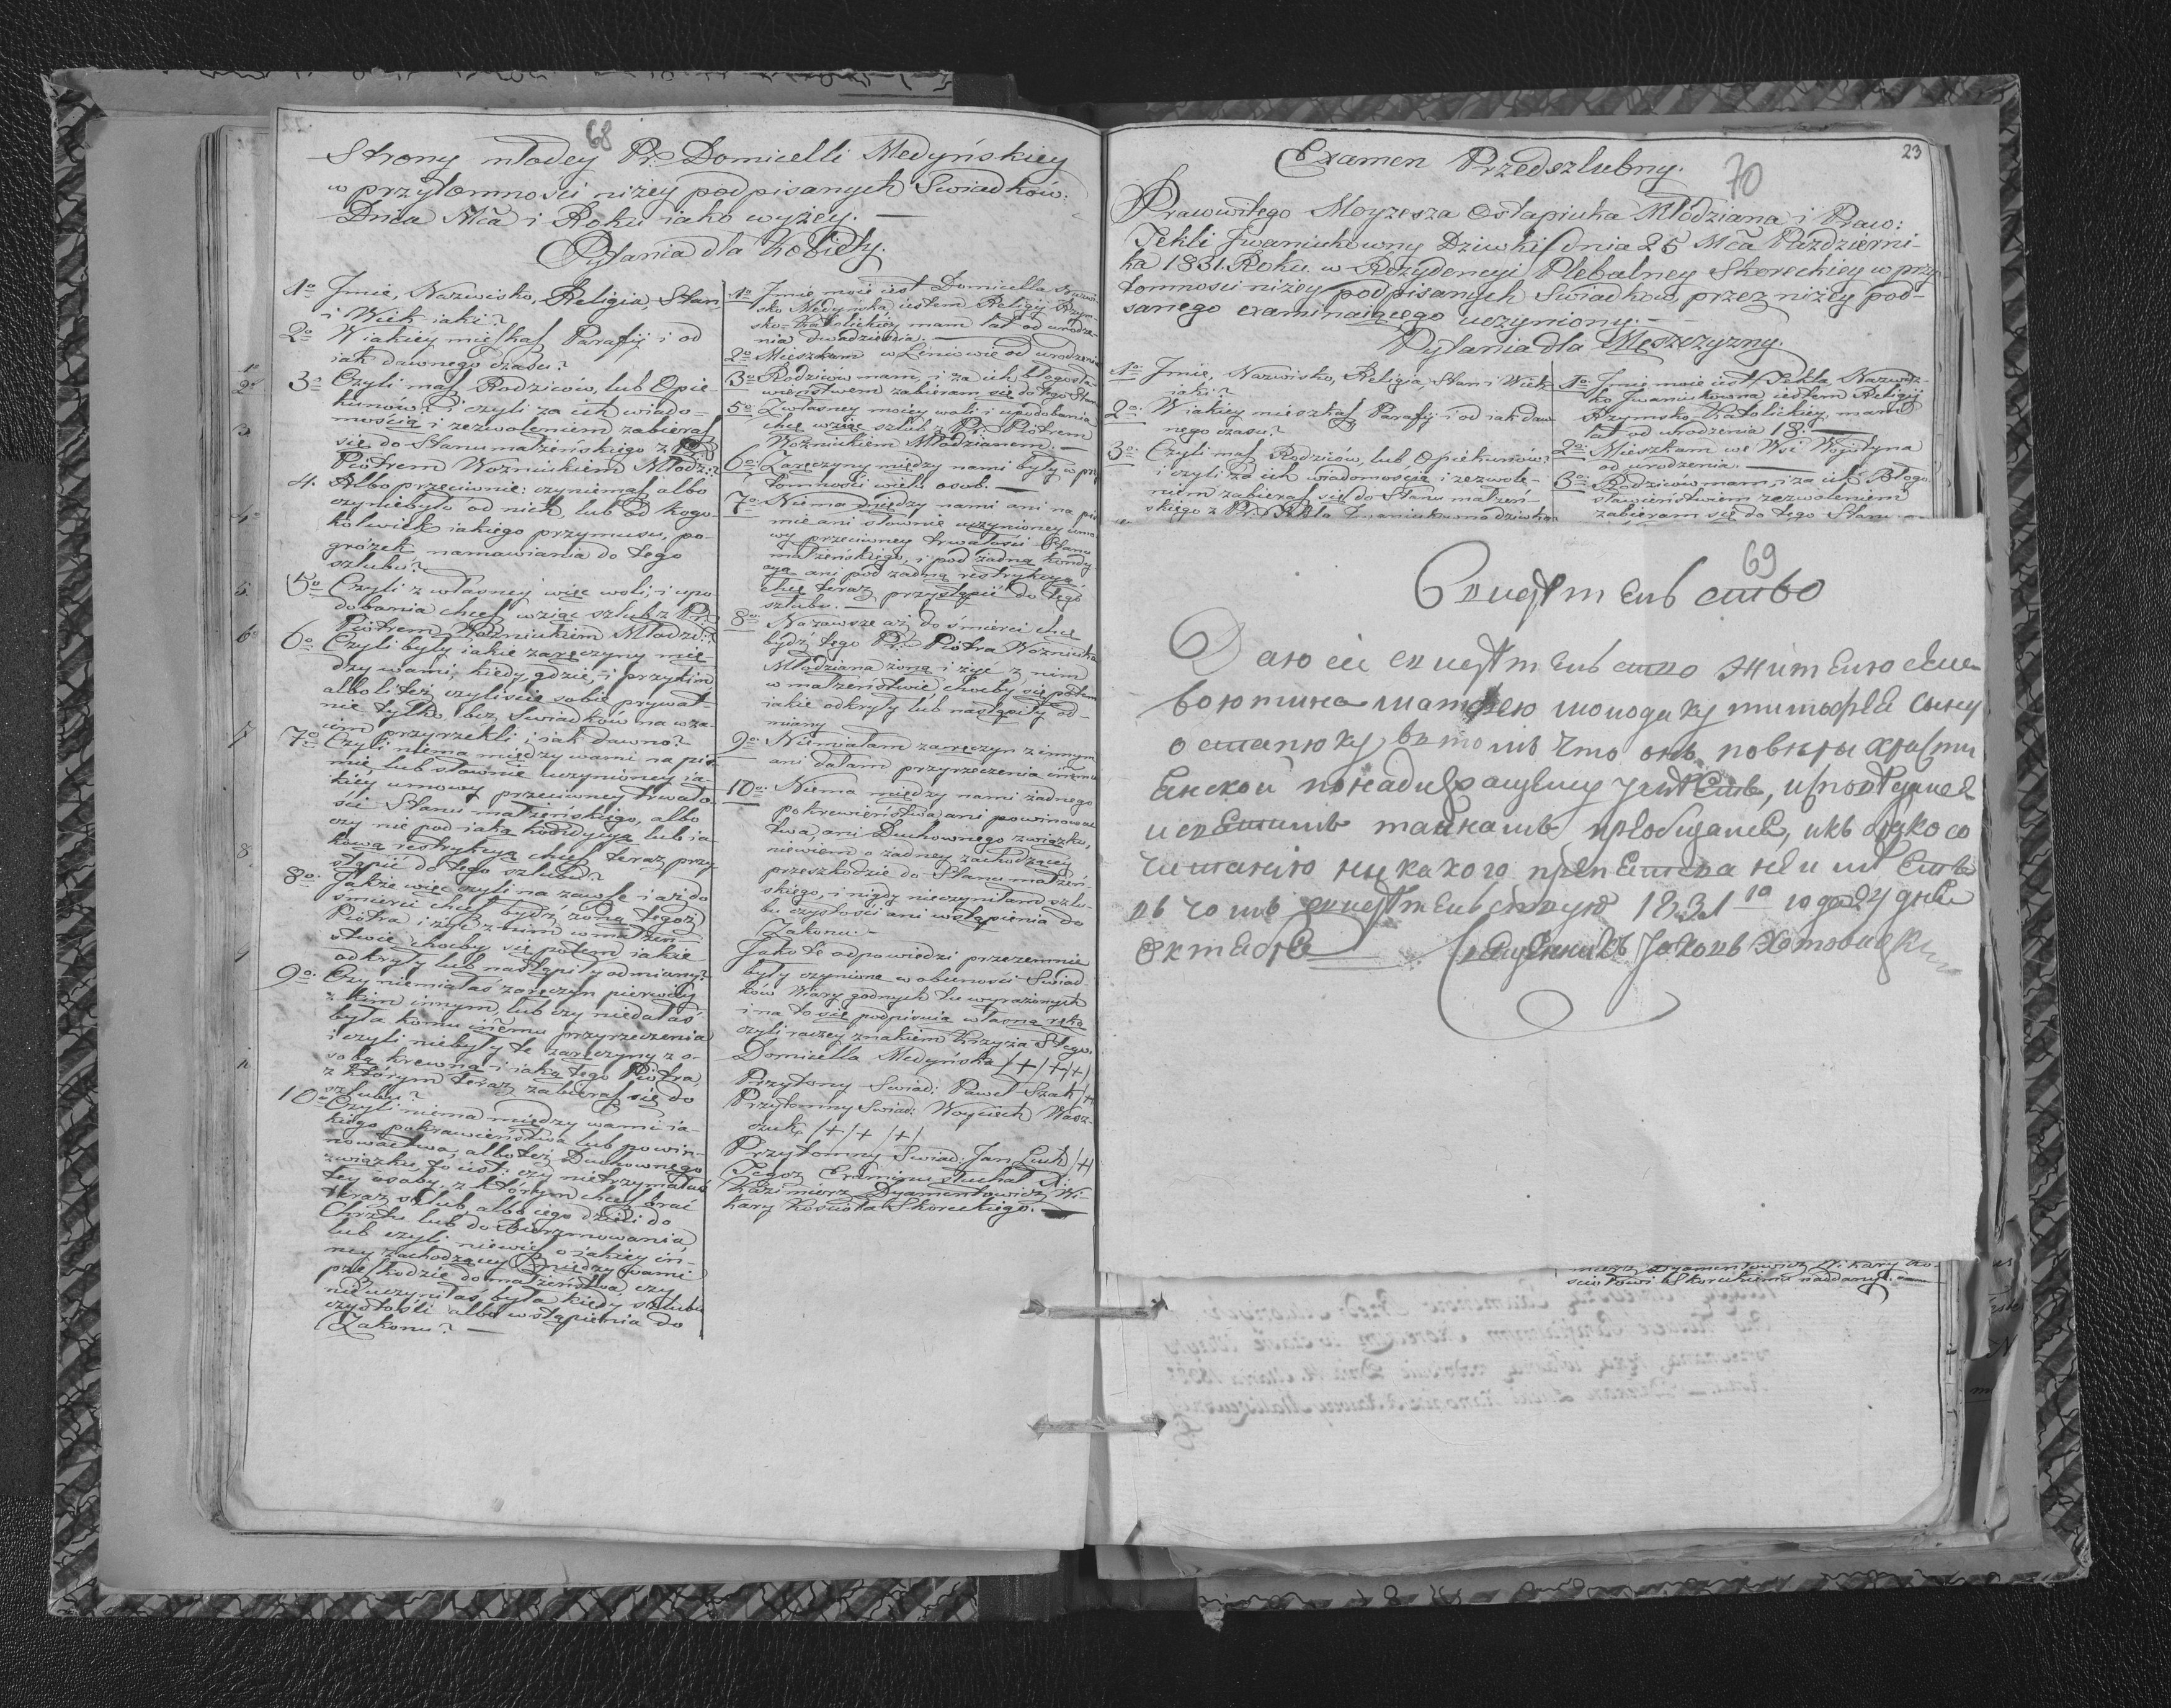 68
Strony młodey Pr: Domicelli Medyńskiey
w przytomnosci niżey podpisanych Swiadków.
Dnia Mca i Roku iako wyżey. —
Pytania dla Kobiety.
1o Jmie, Nazwisko, Religia, Stan,
i Wiek iaki?
2o W iakiey mieszkasz Parafij i od
iak dawnego czasu?
3o Czyli masz Rodziców, lub Opie
kunów? i czyli za ich wiado-
mością i zezwoleniem zabierasz
się do Stanu małżeńskiego z Pr:
Piotrem Wozniukiem Młodz:?
4. Albo przeciwnie: czyniemasz albo
czyniebyło od nich, lub od kogo
kolwiek iakiego przymusu, po-
gróżek namawiania do tego
szlubu?
5o Czyli z własney więc woli, i upo
dobania chcesz wziąć szlub z Pr:
Piotrem Wozniukiem Młodz:?
6o Czyli były iakie zaręczyny mię
dzy wami, kiedy, gdzie, i przykim
albo li też czyliście sobie prywat-
nie tylko bez Swiadków na wza-
iem przyrzekli i iak dawno?
7o Czyli niema między wami na piś
mie, lub słownie uczynioney ia-
kiey umowy przeciwney trwało
ści Stanu małżeńskiego, albo
czy nie pod iaką kondycyą lub ia-
kową restrykcyą chcesz teraz przy-
stąpić do tego szlubu?
8o Jakże więc czyli na zawsze i aż do
śmierci chcesz bydź żoną tegoż
Piotra i żyć z nim w małżeń-
stwie choćby się potem iakie
odkryły lub nastąpiły odmiany?
9o Czy niemiałaś zaręczyn pierwey
z kim innym, lub czy niedałaś
była komu innemu przyrzeczenia
i czyli niebyły te zaręczyny z o-
sobą krewną i iaką tego Piotra,
z którym teraz zabierasz się do
szlubu?
10o Czyli niema między wami ia-
kiego pokrewieństwa lub powin-
nowactwa, albo też Duchownego
związku, to iest: czy nietrzymałaś
tey osoby, z którym chcesz brać
teraz szlub, albo iego dzieci do
Chrztu lub do Bierzmowania
lub czyli niewiesz o iakiey in-
ney zachodzącey między wami
przeszkodzie do małżeństwa, czy
nieuczyniłaś była kiedy szlubu
czystości albo wstąpienia do
Zakonu? —
1o Jmie moie iest Domicella Nazwi-
sko Medyńska, iestem Religij Rzym-
sko-Katolickiey mam lat od urodze-
nia dwadzieścia. —
2o Mieszkam w Liniowie od urodzenia
3o Rodziców mam, i za ich błogosła-
wieństwem zabieram się do tego Stanu
5o Z własney moiey woli i upodobania
chcę wziąć szlub z Pr: Piotrem
Wozniukiem Młodzianem. —
6o Zaręczyny między nami były w przy
tomności wielu osob. —
7o Niema między nami ani na piś
mie ani słownie uczynioney umo
wy przeciwney trwałości Stanu
małżeńskiego, i pod żadną kondy
cyą ani pod żadną restrykcyą
chcę teraz przystąpić do tego
szlubu. —
8o Na zawsze aż do śmierci chcę
bydź tego Pr: Piotra Wozniuka
Młodziana żoną i żyć z nim
w małżeństwie, choćby się potem
iakie odkryły lub nastąpiły od-
miany
9o Niemiałam zaręczyn z innym
ani dałam przyrzeczenia innemu
10o Niema między nami żadnego
pokrewieństwa, ani powinowac
twa, ani Duchownego związku,
niewiem o żadney zachodzącey
przeszkodzie do Stanu małżeń-
skiego, i nigdy nieczyniłam szlu-
bu czystości ani wstąpienia do
Zakonu. —
Jako te odpowiedzi przezemnie
były czynione w obecności Swiad
ków Wiary godnych tu wyrażonych
i na to się podpisuię własną ręką
czyli raczey znakiem Krzyża Stego.
Domicella Medyńska /+/+/+/
Przytomy Swiad: Paweł Szak /+
Przytomny Swiad: Woyciech Wasz-
czuk /+/+/+/
Przytomny Swiad: Jan Luck /+/
Tegoż Examinu słuchał X:
Kazimierz Dyamentowicz Wi-
kary Kościoła Skoreckiego. —
23
Examen Przedszlubny.
70
Prawowitego Moyzesza Ostapiuka Młodziana i Praw:
Tekli Jwaniukowny Dziwki dnia 25 Mca Pazdzierni-
ka 1831. Roku w Rezydencyi Plebalney Skoreckiey w przy-
tomnosci niżey podpisanych Swiadków, przez niżey pod-
sanego examinaiącego uczyniony. —
Pytania dla Męszczyzny.
1o Jmie, Nazwisko, Religia, Stan i Wiek
iaki?
2o W iakiey mieszkasz Parafij i od iak daw
nego czasu?
3o Czyli masz Rodziców, lub Opiekunów?
i czyli za ich wiadomością i zezwole-
niem zabierasz się do Stanu małżeń-
skiego z Pr: Tekla Jwaniukowna dziwka
1o Jmie moie iest Tekla, Nazwis-
ko Jwaniukowna iestem Religij
Rzymsko-Katolickiey, mam
lat od urodzenia 18. —
2o Mieszkam we Wsi Woiutyna
od urodzenia. —
3o Rodziców mam, i za ich Błogo
sławieństwem zezwoleniem
zabieram się do tego Stanu
69
Свидетельство
Даю сие свидетельство жителю села
Воютина молодику тимофея сыну
остапюку, в томъ что онъ по вѣры христи
анской
никакого препятства
въ чомъ свидетельствую 1831го года 24 дня
октября Священникъ Яковъ